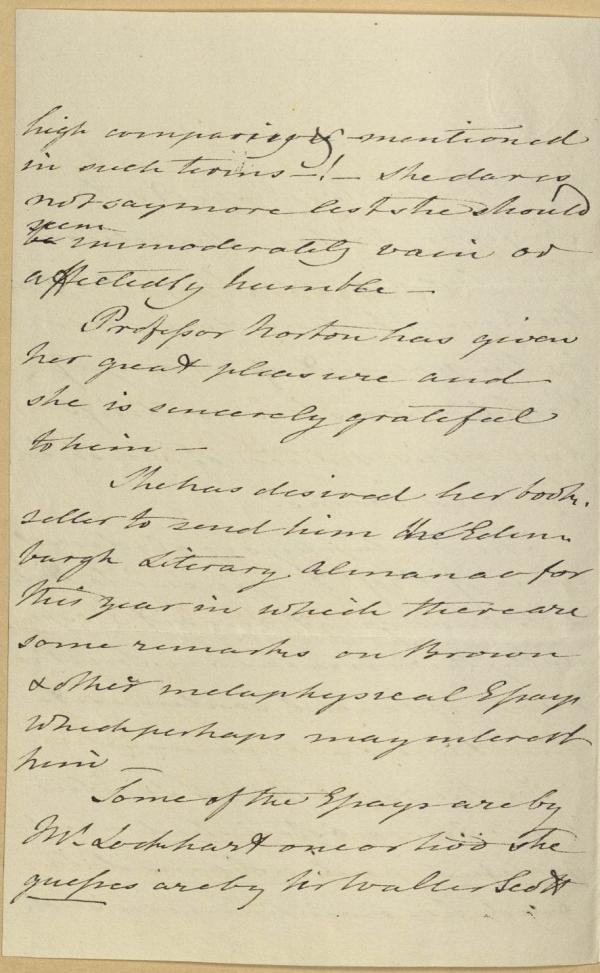 high comparison & mentioned
in such terms — ! — She dares
not say more lest she should
seem
be immoderately vain or
affectedly humble —
Professor Norton has given
her great pleasure and
she is sincerely grateful
to him —
She has desired her book-
seller to send him the Edin-
burgh Literary Almanac for
this year in which there are
some remarks on Brown
& other metaphysical Essays
which perhaps may interest
him —
Some of the Essays are by
Mr. Lockhart one or two she
guesses are by Sir Walter Scott